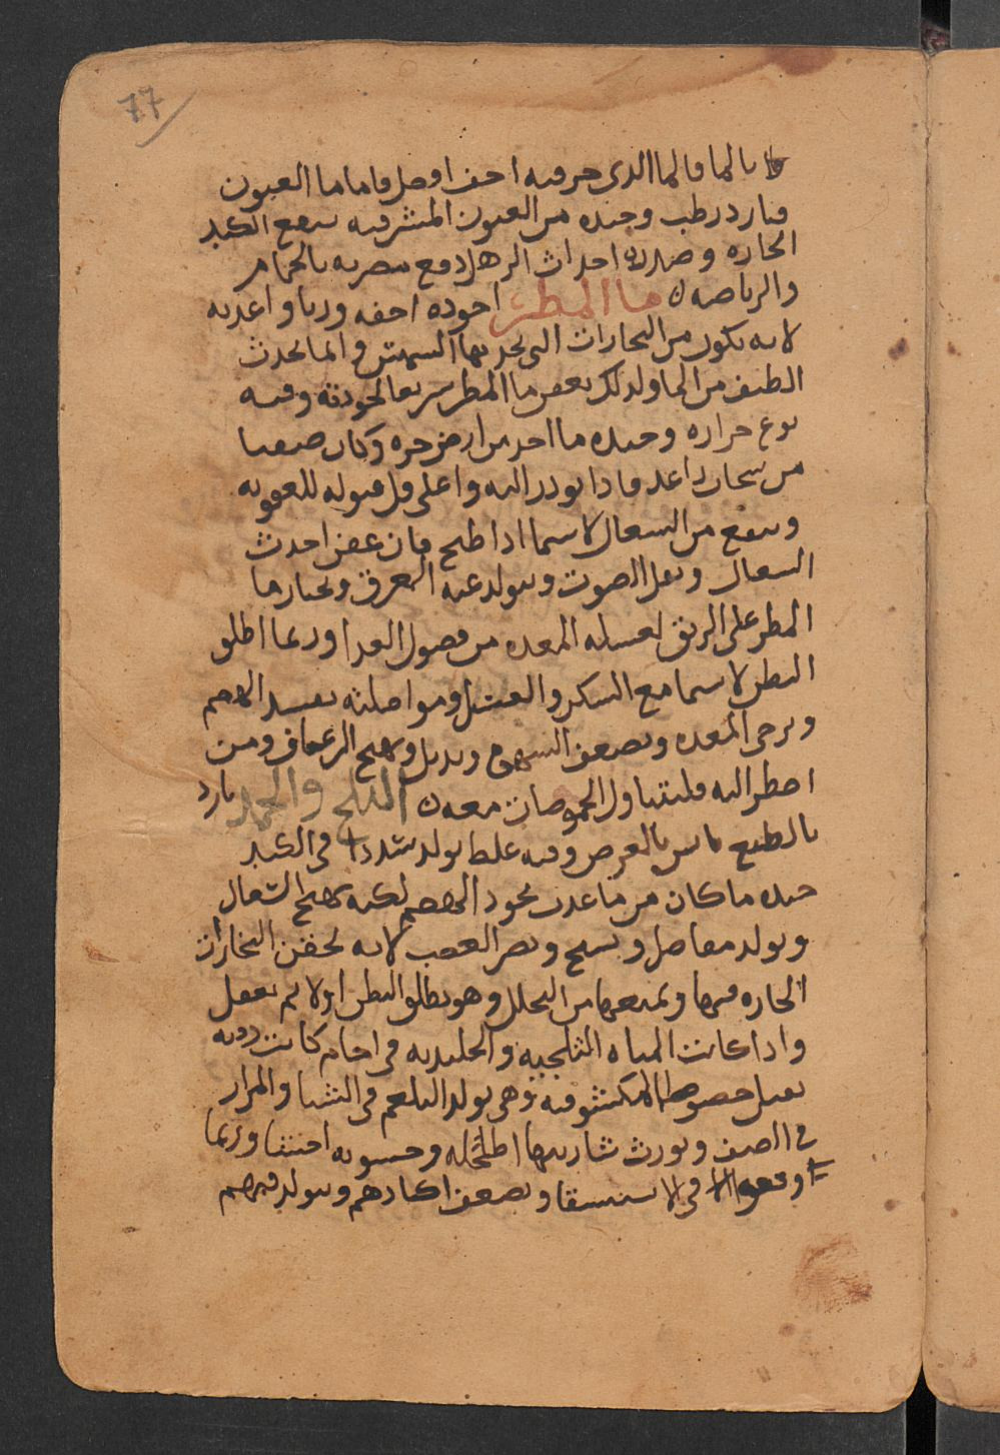 77
بالما فالما الذي جرمه اخف افضل فاما ما العيون
فبارد رطب وجيده من العيون المشرقيه ينفع الكبد
الحاره وضرره احداث الرهل دفع مضرته بالحمام
والرياضه ما المطر اجوده اخفه وزنا واعذبه
لانه يكون من البخارات التي تجذبها الشمس وانما تحدث
اللطيف من الما ولذلك يعفن ما المطر سريعا لجودته وفيه
نوع حراره وجيده ما اخذ من ارض حره وكان صيفيا
من سحاب راعد فاذا بودر اليه واغلي قل قبوله للعفونه
وينفع من السعال لا سيما اذا طبخ فان عفن احدث
السعال وثقل الصوت ويتولد عنه العرق ويختار ما
المطر على الريق لغسله المعده من فضول الغدا وربما اطلق
البطن لا سيما مع السكر والعسل ومواصلته يفسد الهضم
ويرخي المعده ويضعف الشهوه ويذبل ويهيج الرعاف ومن
اضطر اليه فليتناول الحموضات معه الثلج والجمد بارد
بالطبع يابس بالعرض وفيه غلظ يولد سددا في الكبد
جيده ما كان من ما عذب يجود الهضم لكنه يهيج السعال
ويولد مفاصل وتشنج ويضر العصب لانه يحقن البخارات
الحاره فيها ويمنعها من التحلل وهو يطلق البطن اولا ثم يعقل
واذا كانت المياه الثلجيه والجليديه في اجام كانت رديه
ثقيل خصوصا المكشوفه وهي تولد البلغم في الشتا والمرار
في الصيف وتورث شاربيها اطحله وخشونه احشا وربما
اوقعوا في الاستسقا ويضعف اكبادهم ويتولد فيهم